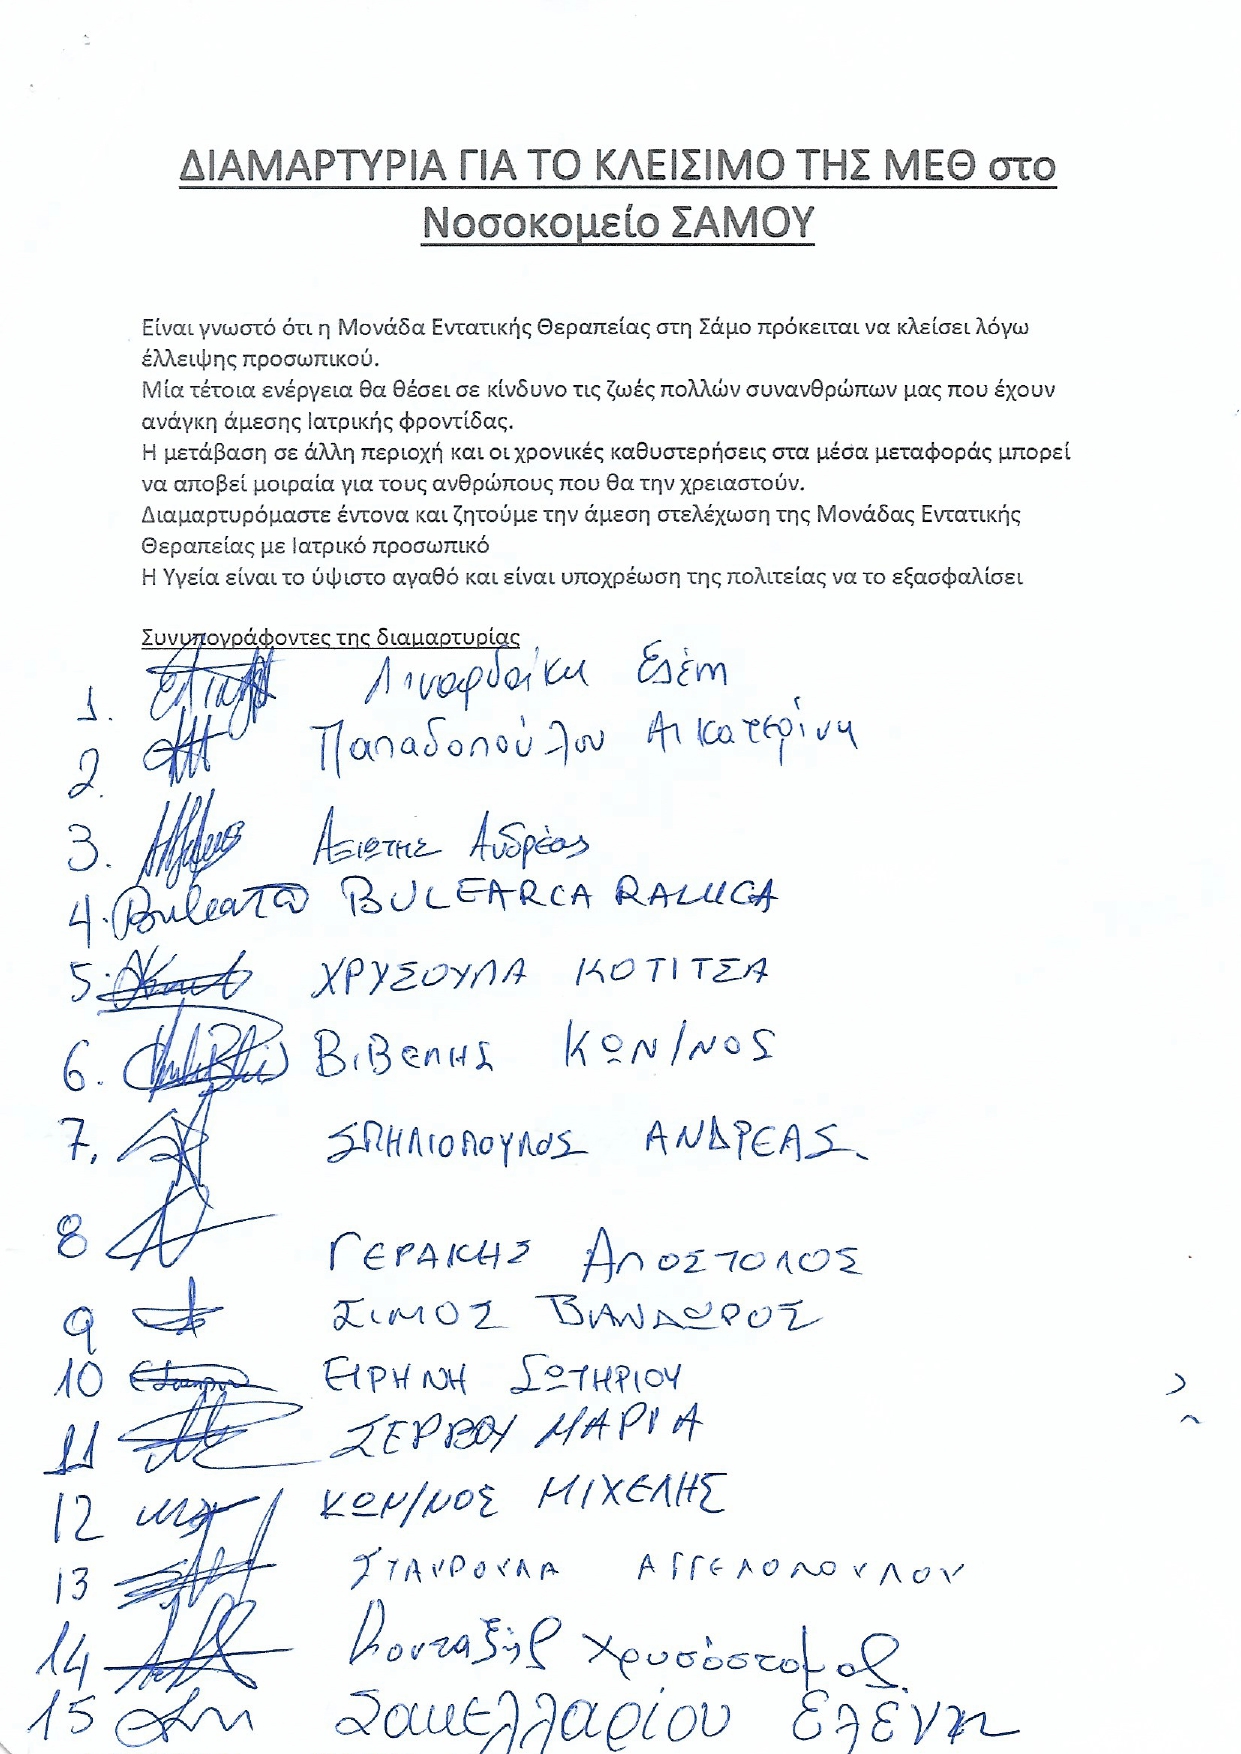 ΔΙΑΜΑΡΤΥΡΙΑ ΓΙΑ ΤΟ ΚΛΕΙΣΙΜΟ ΤΗΣ ΜΕΘ στο
Νοσοκομείο ΣΑΜΟΥ
Είναι γνωστό ότι η Μονάδα Εντατικής Θεραπείας στη Σάμο πρόκειται να κλείσει λόγω
έλλειψης προσωπικού.
Μία τέτοια ενέργεια θα θέσει σε κίνδυνο τις ζωές πολλών συνανθρώπων μας που έχουν
ανάγκη άμεσης Ιατρικής φροντίδας.
Η μετάβαση σε άλλη περιοχή και οι χρονικές καθυστερήσεις στα μέσα μεταφοράς μπορεί
να αποβεί μοιραία για τους ανθρώπους που θα την χρειαστούν.
Διαμαρτυρόμαστε έντονα και ζητούμε την άμεση στελέχωση της Μονάδας Εντατικής
Θεραπείας με Ιατρικό προσωπικό
Η Υγεία είναι το ύψιστο αγαθό και είναι υποχρέωση της πολιτείας να το εξασφαλίσει
Συνυπογράφοντες της διαμαρτυρίας
1. Λιναρδάκη Ελένη
2. Παπαδοπούλου Αικατερίνη
3. Αξιώτης Ανδρέας
4. BULEARCA RALUCA
5. ΧΡΥΣΟΥΛΑ ΚΟΤΙΤΣΑ
6. ΒιΒΕΛΗΣ ΚΩΝ/ΝΟΣ
7. ΣΠΗΛΙΟΠΟΥΛΟΣ ΑΝΔΡΕΑΣ
8 ΓΕΡΑΚΗΣ ΑΠΟΣΤΟΛΟΣ
9 ΣΙΜΟΣ ΒΙΑΝΔΩΡΟΣ
10 ΕΙΡΗΝΗ ΣΩΤΗΡΙΟΥ
11 ΣΕΡΒΟΥ ΜΑΡΙΑ
12 ΚΩΝ/ΝΟΣ ΜΙΧΕΛΗΣ
13 ΣΤΑΥΡΟΥΛΑ ΑΓΓΕΛΟΠΟΥΛΟΥ
14 Κονταξής Χρυσόστομος
15 Σακελλαρίου Ελένη